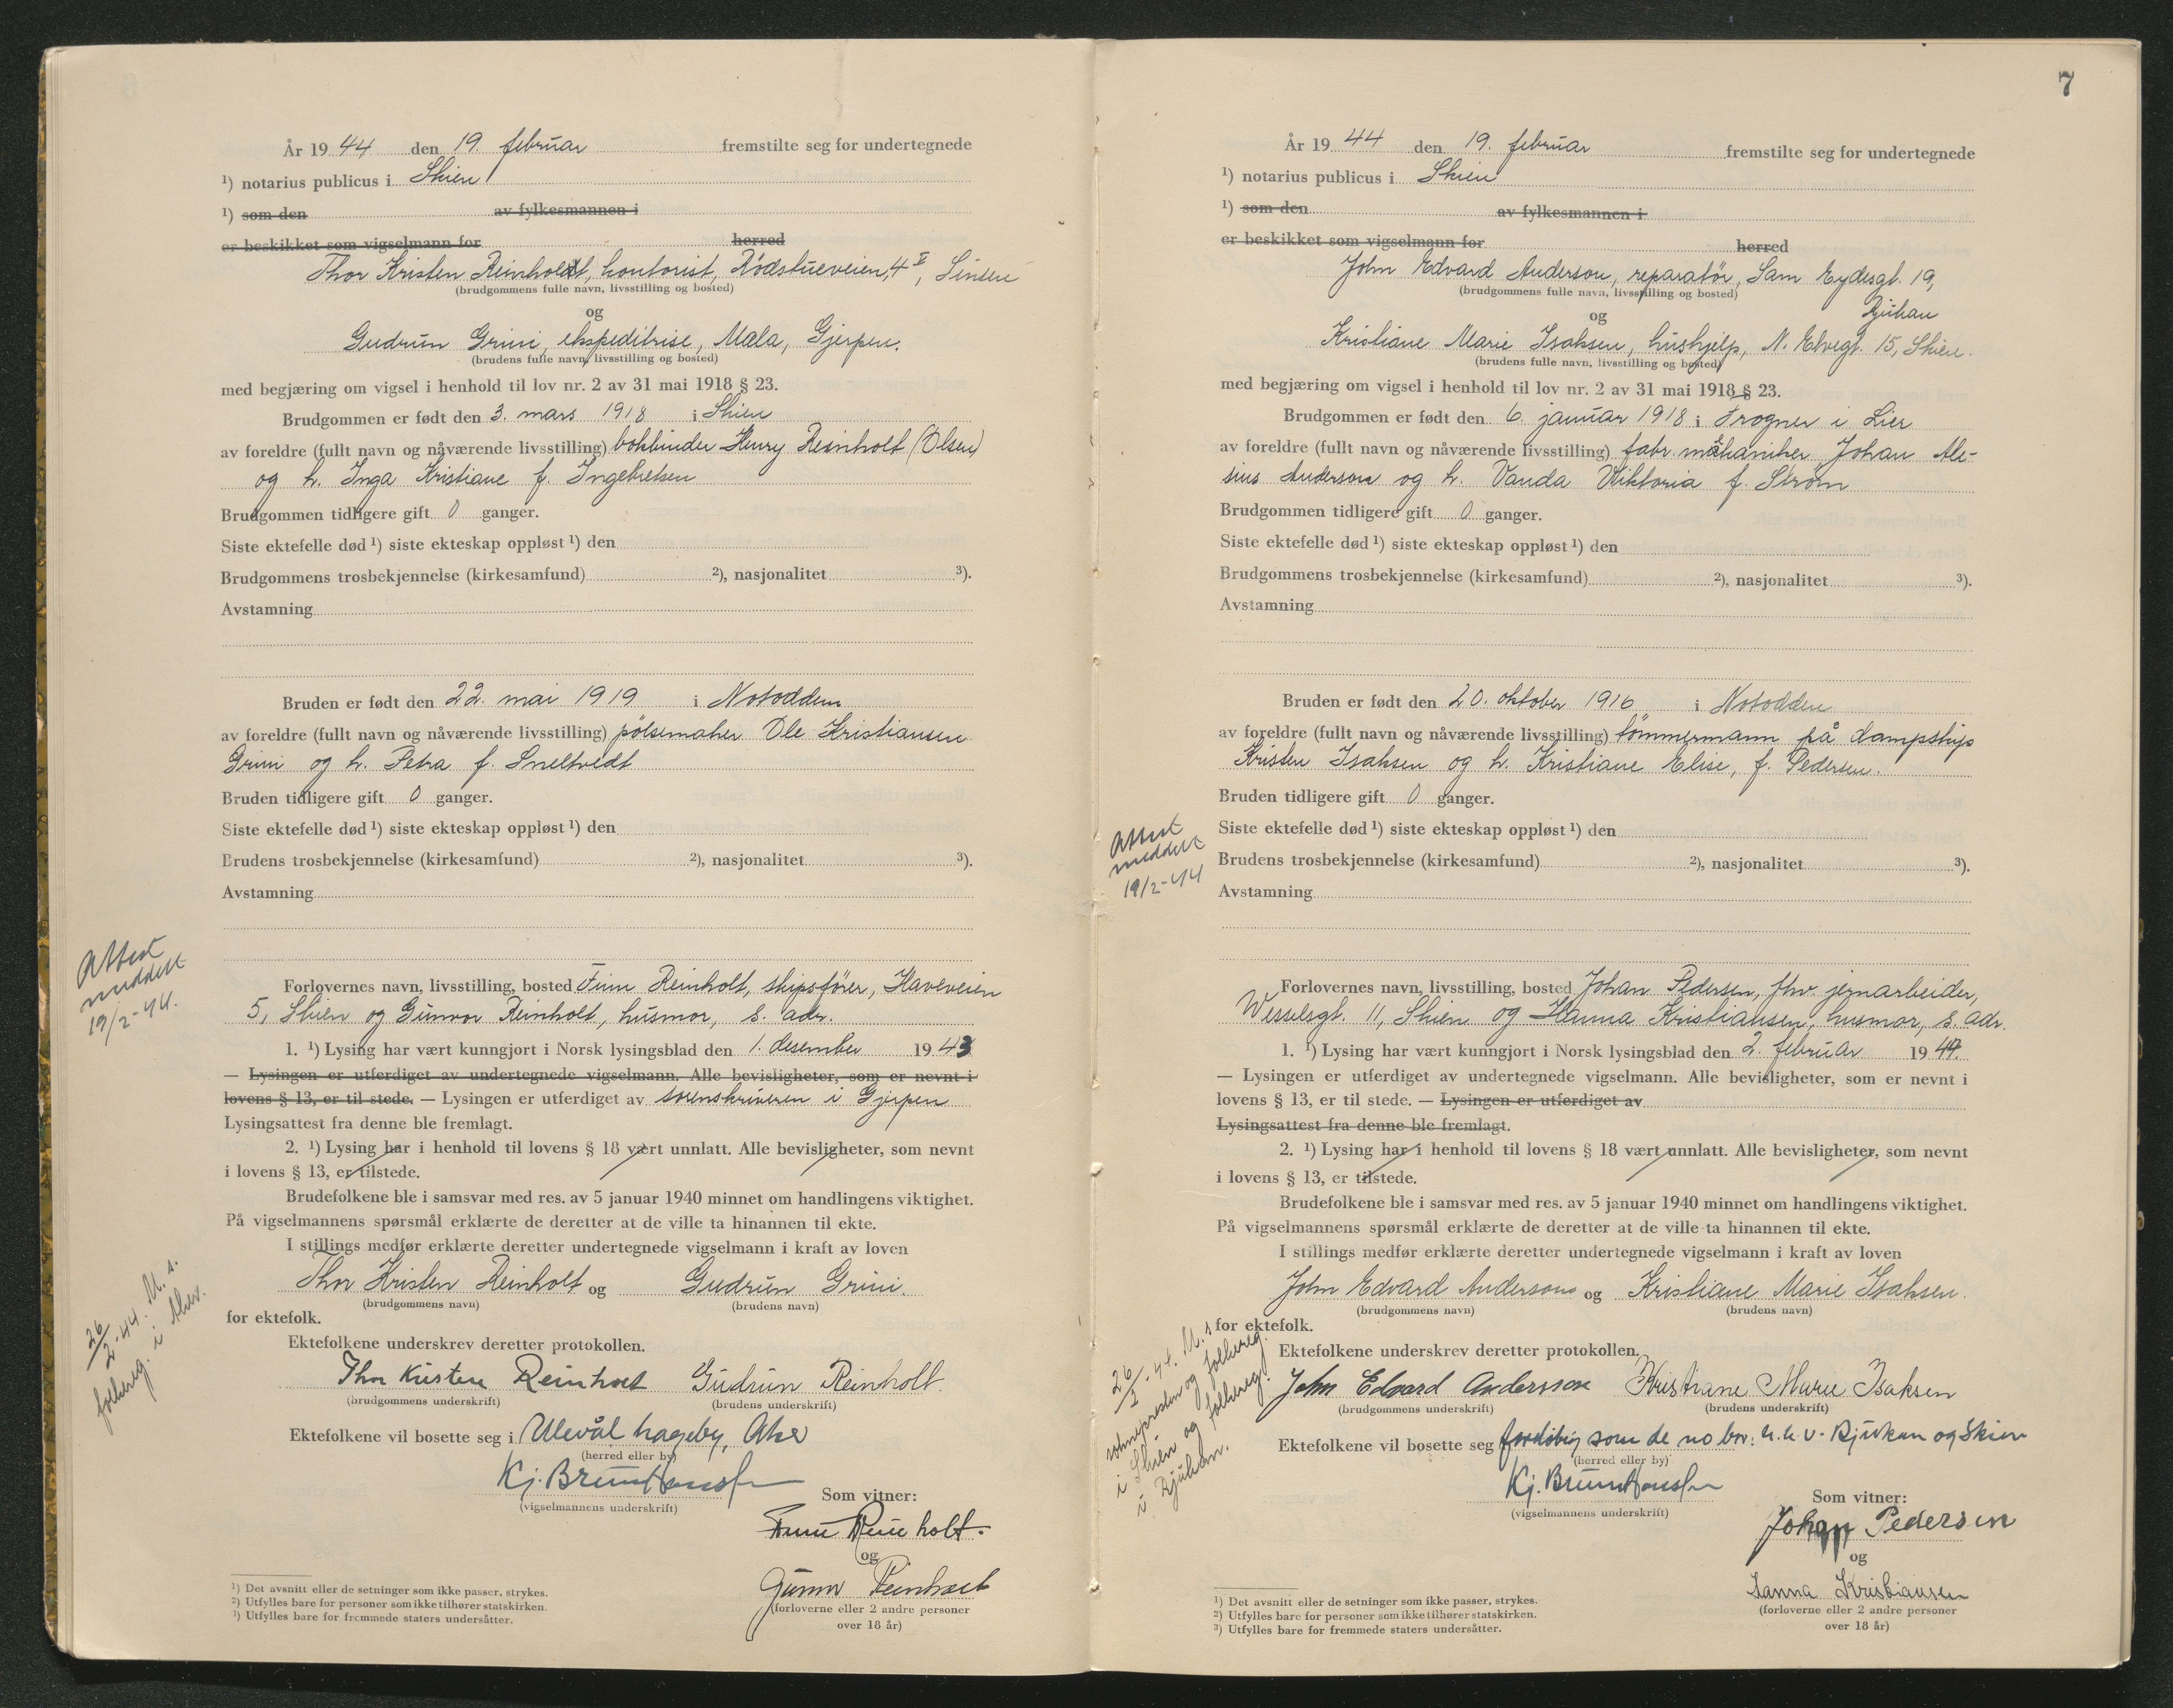 År 19 44 den 19. februar fremstilte seg for undertegnede
¹) notarius publicus i Skien
¹) som den av fylkesmannen i
er beskikket som vigselmann for herred
Thor Kristen Reinholt, kontorist, Rödstueveien 4 II, Sinsen
(brudgommens fulle navn, livsstilling og bosted)
og
Gudrun Grini, ekspeditrise, Mæla, Gjerpen.
(brudens fulle navn, livsstilling og bosted)
med begjæring om vigsel i henhold til lov nr. 2 av 31 mai 1918 § 23.
Brudgommen er født den 3. mars 1918 i Skien
av foreldre (fullt navn og nåværende livsstilling) bokbinder Henry Reinholt (Olsen)
og h. Inga Kristiane f. Ingebretsen
Brudgommen tidligere gift 0 ganger.
Siste ektefelle død ¹) siste ekteskap oppløst ¹) den
Brudgommens trosbekjennelse (kirkesamfund) ²), nasjonalitet ³).
Avstamning
Bruden er født den 22. mai 1919 i Notodden
av foreldre (fullt navn og nåværende livsstilling) pölsemaker Ole Kristiansen
Grini og h. Petra f. Sneltvedt
Bruden tidligere gift 0 ganger.
Siste ektefelle død ¹) siste ekteskap oppløst ¹) den
Brudens trosbekjennelse (kirkesamfund) ²), nasjonalitet ³).
Avstamning
Attest
meddelt
19/2-44.
Forlovernes navn, livsstilling, bosted Finn Reinholt, skipsfører, Haveveien
5, Skien og Gunvor Reinholt, husmor, s. adr.
1. ¹) Lysing har vært kunngjort i Norsk lysingsblad den 1. desember 19 43
— Lysingen er utferdiget av undertegnede vigselmann. Alle bevisligheter, som er nevnt i
lovens § 13, er til stede. — Lysingen er utferdiget av sorenskriveren i Gjerpen
Lysingsattest fra denne ble fremlagt.
2. ¹) Lysing har i henhold til lovens § 18 vært unnlatt. Alle bevisligheter, som nevnt
i lovens § 13, er tilstede.
Brudefolkene ble i samsvar med res. av 5 januar 1940 minnet om handlingens viktighet.
På vigselmannens spørsmål erklærte de deretter at de ville ta hinannen til ekte.
I stillings medfør erklærte deretter undertegnede vigselmann i kraft av loven
Thor Kristen Reinholt og Gudrun Grini.
(brudgommens navn) (brudens navn)
for ektefolk.
26/2-44. M. s.
folkereg. i Aker.
Ektefolkene underskrev deretter protokollen.
Thor Kristen Reinholt Gudrun Reinholt.
(brudgommens underskrift) (brudens underskrift)
Ektefolkene vil bosette seg i Ulevål hageby, Aker
(herred eller by)
Kj. Brun Hanssen
(vigselmannens underskrift)
Som vitner:
Finn Reinholt.
og
Gunvor Reinholt
(forloverne eller 2 andre personer
over 18 år)
¹) Det avsnitt eller de setninger som ikke passer, strykes.
²) Utfylles bare for personer som ikke tilhører statskirken.
³) Utfylles bare for fremmede staters undersåtter.
7
År 19 44 den 19. februar fremstilte seg for undertegnede
¹) notarius publicus i Skien
¹) som den av fylkesmannen i
er beskikket som vigselmann for herred
John Edvard Anderson, reparatör, Sam Eydesgt. 19,
(brudgommens fulle navn, livsstilling og bosted)
Rjukan
og
Kristiane Marie Isaksen, hushjelp, N. Elvegt. 15, Skien.
(brudens fulle navn, livsstilling og bosted)
med begjæring om vigsel i henhold til lov nr. 2 av 31 mai 1918 § 23.
Brudgommen er født den 6. januar 1918 i Frogner i Lier
av foreldre (fullt navn og nåværende livsstilling) fabr. mekaniker Johan Ale-
sius Anderson og h. Vanda Viktoria f. Ström
Brudgommen tidligere gift 0 ganger.
Siste ektefelle død ¹) siste ekteskap oppløst ¹) den
Brudgommens trosbekjennelse (kirkesamfund) ²), nasjonalitet ³).
Avstamning
Bruden er født den 20. oktober 1916 i Notodden
av foreldre (fullt navn og nåværende livsstilling) tömmermann på dampskip
Kristen Isaksen og h. Kristiane Elise, f. Pedersen.
Bruden tidligere gift 0 ganger.
Siste ektefelle død ¹) siste ekteskap oppløst ¹) den
Attest
meddelt
19/2-44
Brudens trosbekjennelse (kirkesamfund) ²), nasjonalitet ³).
Avstamning
Forlovernes navn, livsstilling, bosted Johan Pedersen, fhv. jernarbeider,
Wesselsgt. 11, Skien og Hanna Kristiansen, husmor, s. adr.
1. ¹) Lysing har vært kunngjort i Norsk lysingsblad den 2. februar 19 44.
— Lysingen er utferdiget av undertegnede vigselmann. Alle bevisligheter, som er nevnt i
lovens § 13, er til stede. — Lysingen er utferdiget av
Lysingsattest fra denne ble fremlagt.
2. ¹) Lysing har i henhold til lovens § 18 vært unnlatt. Alle bevisligheter, som nevnt
i lovens § 13, er tilstede.
Brudefolkene ble i samsvar med res. av 5 januar 1940 minnet om handlingens viktighet.
På vigselmannens spørsmål erklærte de deretter at de ville ta hinannen til ekte.
I stillings medfør erklærte deretter undertegnede vigselmann i kraft av loven
John Edvard Anderson og Kristiane Marie Isaksen.
(brudgommens navn) (brudens navn)
for ektefolk.
26/2-44. M. s
soknepresten og folkereg.
i Skien og folkereg.
i Rjukan.
Ektefolkene underskrev deretter protokollen.
John Edvard Andersson Kristiane Marie Isaksen
(brudgommens underskrift) (brudens underskrift)
Ektefolkene vil bosette seg som de no bor: h.h.v. Rjukan og Skien
(herred eller by)
Kj. Brun Hanssen
(vigselmannens underskrift)
Som vitner:
Johan Pedersen
og
Hanna Kristiansen
(forloverne eller 2 andre personer
over 18 år)
¹) Det avsnitt eller de setninger som ikke passer, strykes.
²) Utfylles bare for personer som ikke tilhører statskirken.
³) Utfylles bare for fremmede staters undersåtter.